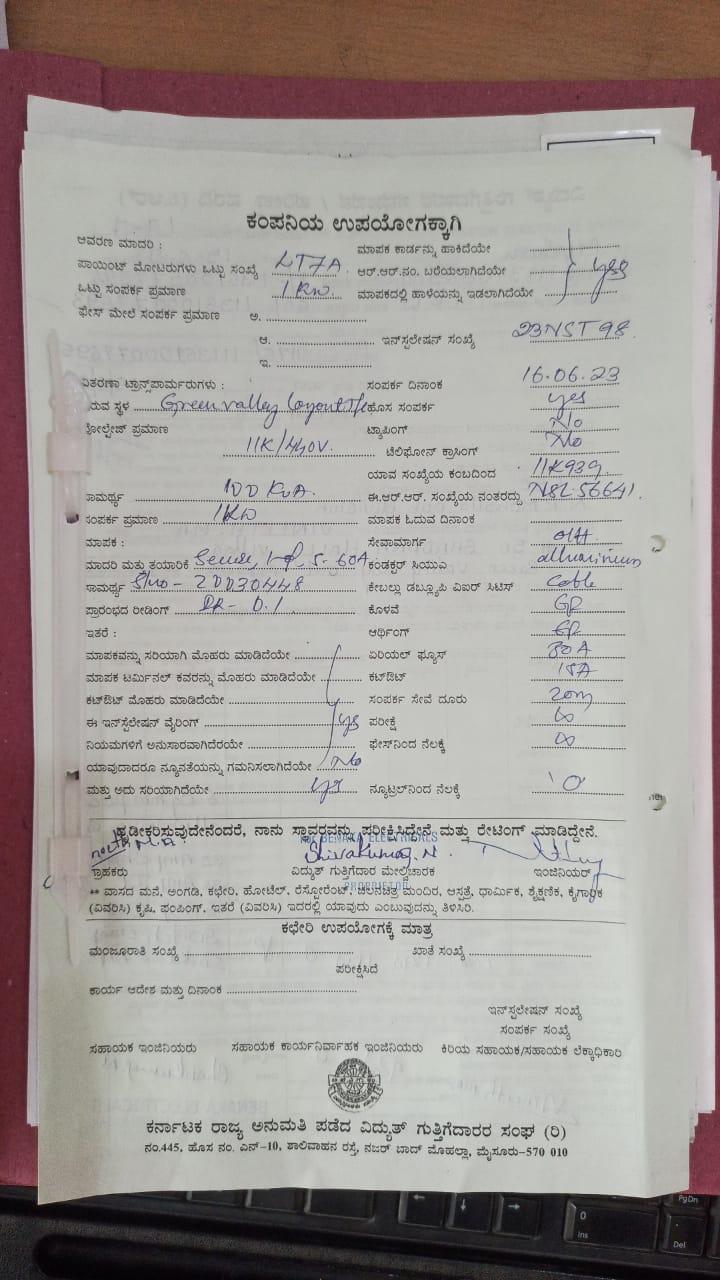 ಕಂಪನಿಯ ಉಪಯೋಗಕ್ಕಾಗಿ
ಆವರಣ ಮಾದರಿ : ಮಾಪಕ ಕಾರ್ಡನ್ನು ಹಾಕಿದೆಯೇ
ಪಾಯಿಂಟ್ ಮೋಟರುಗಳು ಒಟ್ಟು ಸಂಖ್ಯೆ LT7A ಆರ್.ಆರ್.ನಂ. ಬರೆಯಲಾಗಿದೆಯೇ yes
ಒಟ್ಟು ಸಂಪರ್ಕ ಪ್ರಮಾಣ 1KW ಮಾಪಕದಲ್ಲಿ ಹಾಳೆಯನ್ನು ಇಡಲಾಗಿದೆಯೇ
ಫೇಸ್ ಮೇಲೆ ಸಂಪರ್ಕ ಪ್ರಮಾಣ ಅ.
ಆ. ಇನ್‌ಸ್ಟಲೇಷನ್ ಸಂಖ್ಯೆ 23NST98
ಇ.
ವಿತರಣಾ ಟ್ರಾನ್ಸ್‌ಪಾರ್ಮರುಗಳು : ಸಂಪರ್ಕ ದಿನಾಂಕ 16.06.23
ಇರುವ ಸ್ಥಳ Green valley Layout ಹೊಸ ಸಂಪರ್ಕ yes
ವೋಲ್ಟೇಜ್ ಪ್ರಮಾಣ ಟ್ಯಾಪಿಂಗ್ No
11K/440V. ಟೆಲಿಫೋನ್ ಕ್ರಾಸಿಂಗ್ No
ಯಾವ ಸಂಖ್ಯೆಯ ಕಂಬದಿಂದ 11K939
ಸಾಮರ್ಥ್ಯ 100 KVA. ಈ.ಆರ್.ಆರ್. ಸಂಖ್ಯೆಯ ನಂತರದ್ದು NSL.56641.
ಸಂಪರ್ಕ ಪ್ರಮಾಣ 1KW ಮಾಪಕ ಓದುವ ದಿನಾಂಕ
ಮಾಪಕ : ಸೇವಾಮಾರ್ಗ OH
ಮಾದರಿ ಮತ್ತು ತಯಾರಿಕೆ Secure, 5-60A ಕಂಡಕ್ಟರ್ ಸಿಯುಎ
ಸಾಮರ್ಥ್ಯ S/no - 20030448 ಕೇಬಲ್ಲು ಡಬ್ಲ್ಯೂಪಿ ವಿಐರ್ ಸಿಟಿಸ್ Cable
ಪ್ರಾರಂಭದ ರೀಡಿಂಗ್ IR- 0.1 ಕೊಳವೆ GP
ಇತರೆ : ಆರ್ಥಿಂಗ್ GP
ಮಾಪಕವನ್ನು ಸರಿಯಾಗಿ ಮೊಹರು ಮಾಡಿದೆಯೇ ಏರಿಯಲ್ ಫ್ಯೂಸ್ 30A
ಮಾಪಕ ಟರ್ಮಿನಲ್ ಕವರನ್ನು ಮೊಹರು ಮಾಡಿದೆಯೇ ಕಟ್‌ಔಟ್ 15A
ಕಟ್‌ಔಟ್ ಮೊಹರು ಮಾಡಿದೆಯೇ ಸಂಪರ್ಕ ಸೇವೆ ದೂರು 20m
ಈ ಇನ್‌ಸ್ಟಲೇಷನ್ ವೈರಿಂಗ್ yes ಪರೀಕ್ಷೆ ∞
ನಿಯಮಗಳಿಗೆ ಅನುಸಾರವಾಗಿದೆರಯೇ ಫೇಸ್‌ನಿಂದ ನೆಲಕ್ಕೆ ∞
ಯಾವುದಾದರೂ ನ್ಯೂನತೆಯನ್ನು ಗಮನಿಸಲಾಗಿದೆಯೇ No
ಮತ್ತು ಅದು ಸರಿಯಾಗಿದೆಯೇ yes ನ್ಯೂಟ್ರಲ್‌ನಿಂದ ನೆಲಕ್ಕೆ 'O'
ದೃಡೀಕರಿಸುವುದೇನೆಂದರೆ, ನಾನು ಸ್ಥಾವರವನ್ನು ಪರೀಕ್ಷಿಸಿದ್ದೇನೆ ಮತ್ತು ರೇಟಿಂಗ್ ಮಾಡಿದ್ದೇನೆ.
BENAKA ELECTRICALS
Shivakumar. N.
ಗ್ರಾಹಕರು ವಿದ್ಯುತ್ ಗುತ್ತಿಗೆದಾರ ಮೇಲ್ವಿಚಾರಕ ಇಂಜಿನಿಯರ್
PROPRIETOR
** ವಾಸದ ಮನೆ, ಅಂಗಡಿ, ಕಛೇರಿ, ಹೋಟೆಲ್, ರೆಸ್ಟೋರೆಂಟ್, ಚಲನಚಿತ್ರ ಮಂದಿರ, ಆಸ್ಪತ್ರೆ, ಧಾರ್ಮಿಕ, ಶೈಕ್ಷಣಿಕ, ಕೈಗಾರಿಕ
(ವಿವರಿಸಿ) ಕೃಷಿ, ಪಂಪಿಂಗ್, ಇತರೆ (ವಿವರಿಸಿ) ಇದರಲ್ಲಿ ಯಾವುದು ಎಂಬುವುದನ್ನು ತಿಳಿಸಿರಿ.
ಕಛೇರಿ ಉಪಯೋಗಕ್ಕೆ ಮಾತ್ರ
ಮಂಜೂರಾತಿ ಸಂಖ್ಯೆ ಖಾತೆ ಸಂಖ್ಯೆ
ಪರೀಕ್ಷಿಸಿದೆ
ಕಾರ್ಯ ಆದೇಶ ಮತ್ತು ದಿನಾಂಕ
ಇನ್‌ಸ್ಟಲೇಷನ್ ಸಂಖ್ಯೆ
ಸಂಪರ್ಕ ಸಂಖ್ಯೆ
ಸಹಾಯಕ ಇಂಜಿನಿಯರು ಸಹಾಯಕ ಕಾರ್ಯನಿರ್ವಾಹಕ ಇಂಜಿನಿಯರು ಕಿರಿಯ ಸಹಾಯಕ/ಸಹಾಯಕ ಲೆಕ್ಕಾಧಿಕಾರಿ
ಕರ್ನಾಟಕ ರಾಜ್ಯ ಅನುಮತಿ ಪಡೆದ ವಿದ್ಯುತ್ ಗುತ್ತಿಗೆದಾರರ ಸಂಘ (ರಿ)
ನಂ.445, ಹೊಸ ನಂ. ಎನ್-10, ಶಾಲಿವಾಹನ ರಸ್ತೆ, ನಜರ್ ಬಾದ್ ಮೊಹಲ್ಲಾ, ಮೈಸೂರು-570 010
PgDn
0
Ins
Del